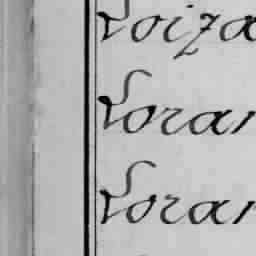 Loiza
Loran
Loran